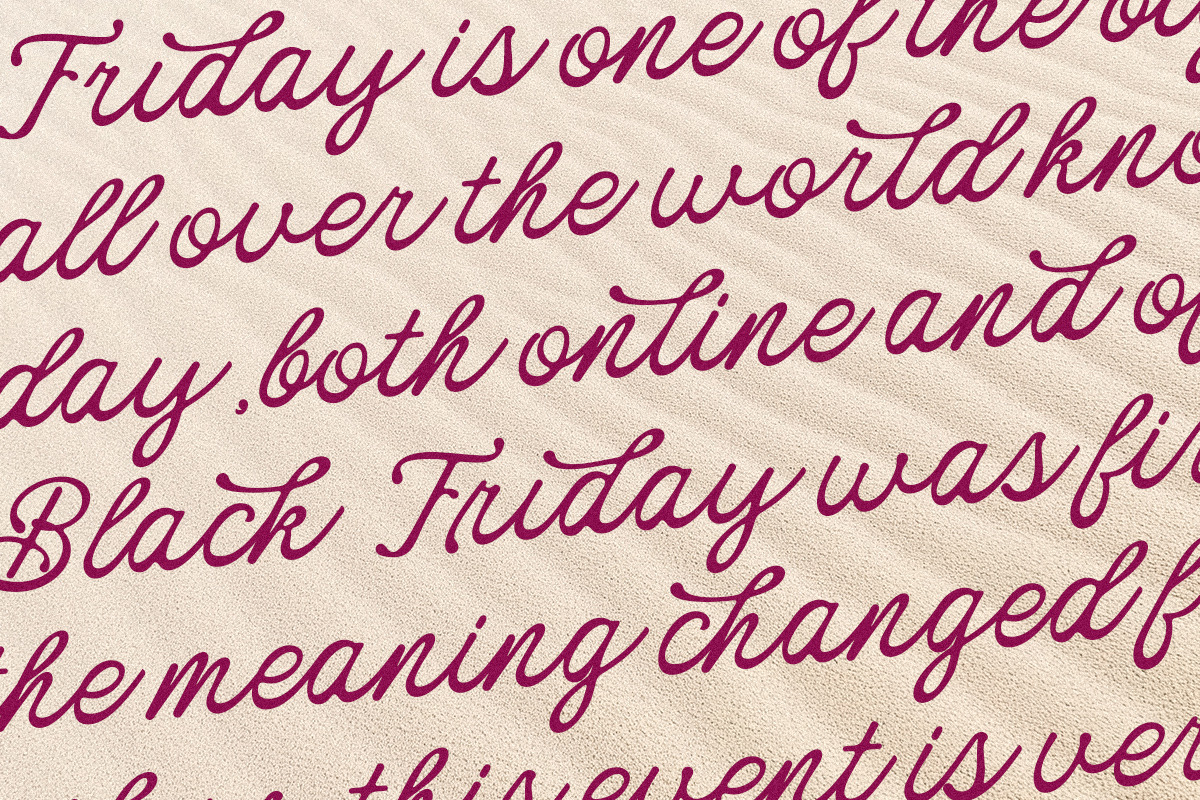 Friday is one of the
all over the world
day ,both online and
Black Friday was
the meaning changed
this event is